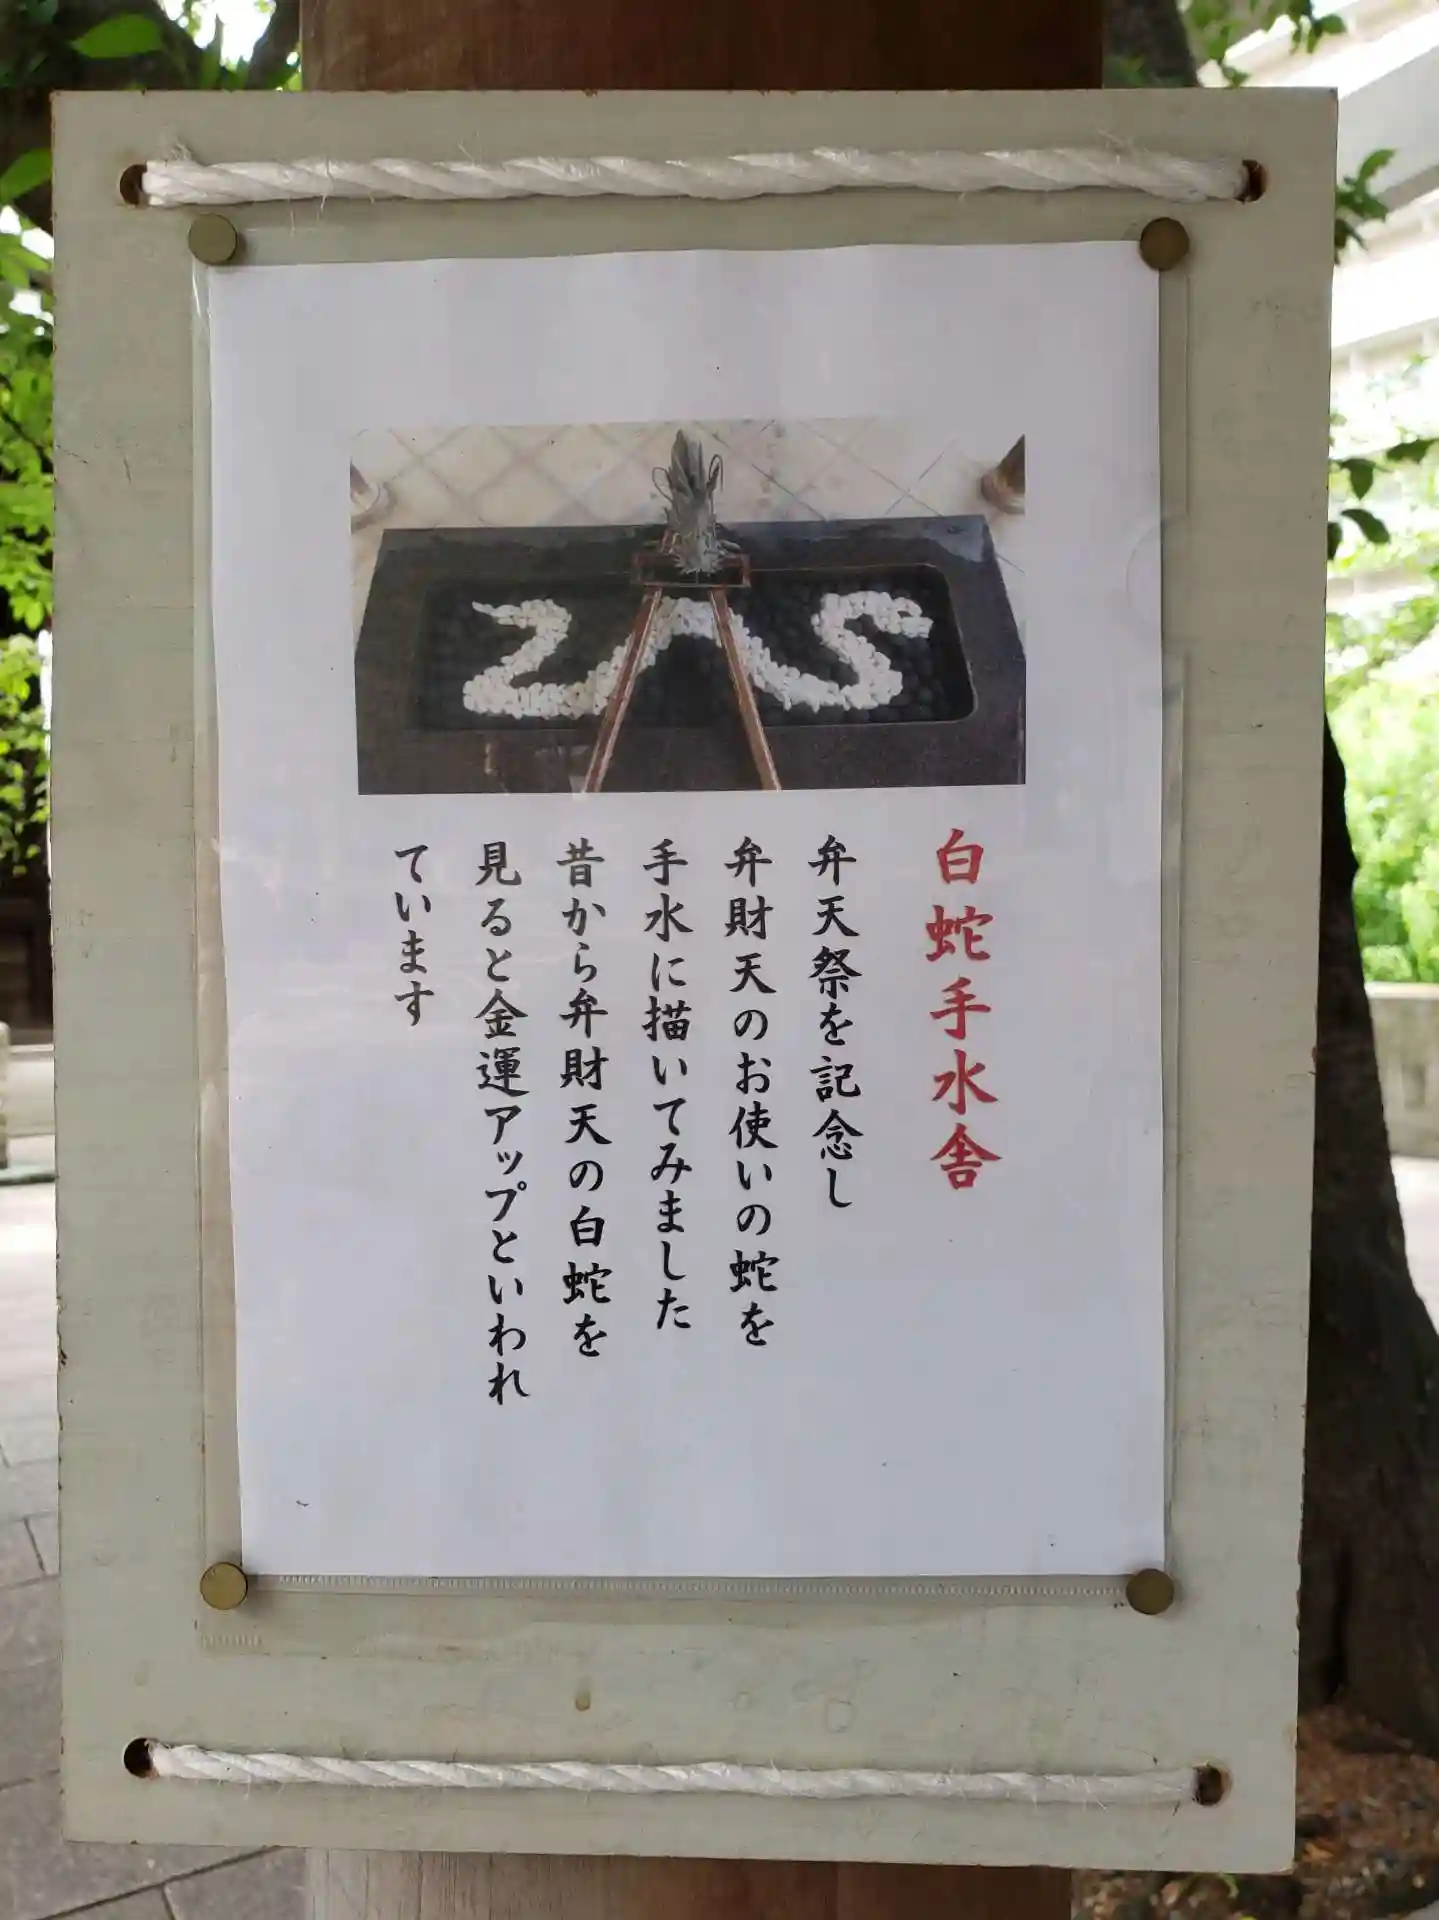 白蛇手水舎
弁天祭を記念し
弁財天のお使いの蛇を
手水に描いてみました
昔から弁財天の白蛇を
見ると金運アップといわれ
ています